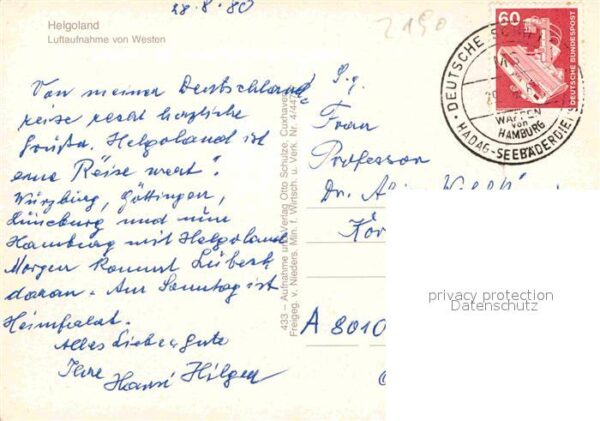 28.8.80
2150
Helgoland
Luftaufnahme von Westen
Von meiner Deutschland
reise recht herzliche
Grüße. Helgoland ist
eine "Reise wert".
Würzburg, Göttingen,
Lüneburg und nun
Hamburg mit Helgoland
Morgen kommt Lübeck
daran. Am Sonntag ist
Heimfahrt.
Alles Liebe u. Gute
Ihre Hansi
433 – Aufnahme und Verlag Otto Schulze, Cuxhaven
Freigeg. v. Nieders. Min. f. Wirtsch. u. Verk. Nr. 4/447
60
DEUTSCHE BUNDESPOST
DEUTSCHE
WAPPEN
von
HAMBURG
HADAG-SEEBÄDERDIENST
S.g.
Frau
Professor
Dr.
A 8010
privacy protection
Datenschutz